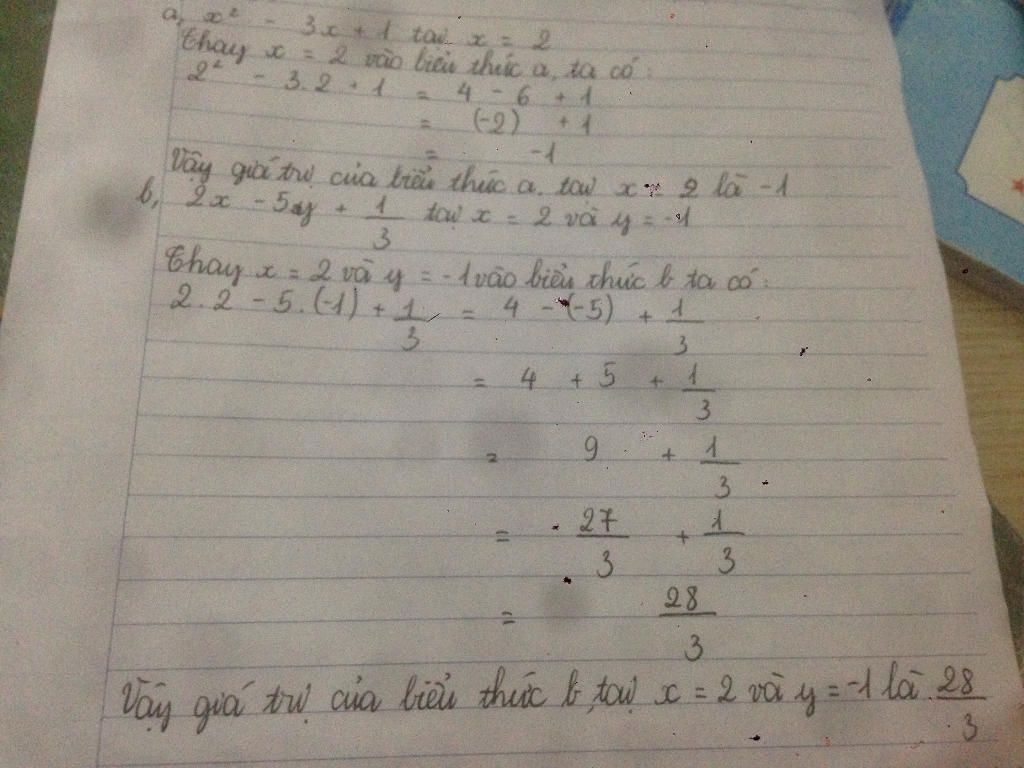 a, x² - 3x + 1 tại x = 2
Thay x = 2 vào biểu thức a, ta có:
2² - 3.2 + 1 = 4 - 6 + 1
= (-2) + 1
= -1
Vậy giá trị của biểu thức a, tại x = 2 là -1
b, 2x - 5y + 1/3 tại x = 2 và y = -1
Thay x = 2 và y = -1 vào biểu thức b ta có:
2.2 - 5.(-1) + 1/3 = 4 - (-5) + 1/3
= 4 + 5 + 1/3
= 9 + 1/3
= 27/3 + 1/3
= 28/3
Vậy giá trị của biểu thức b, tại x = 2 và y = -1 là 28/3